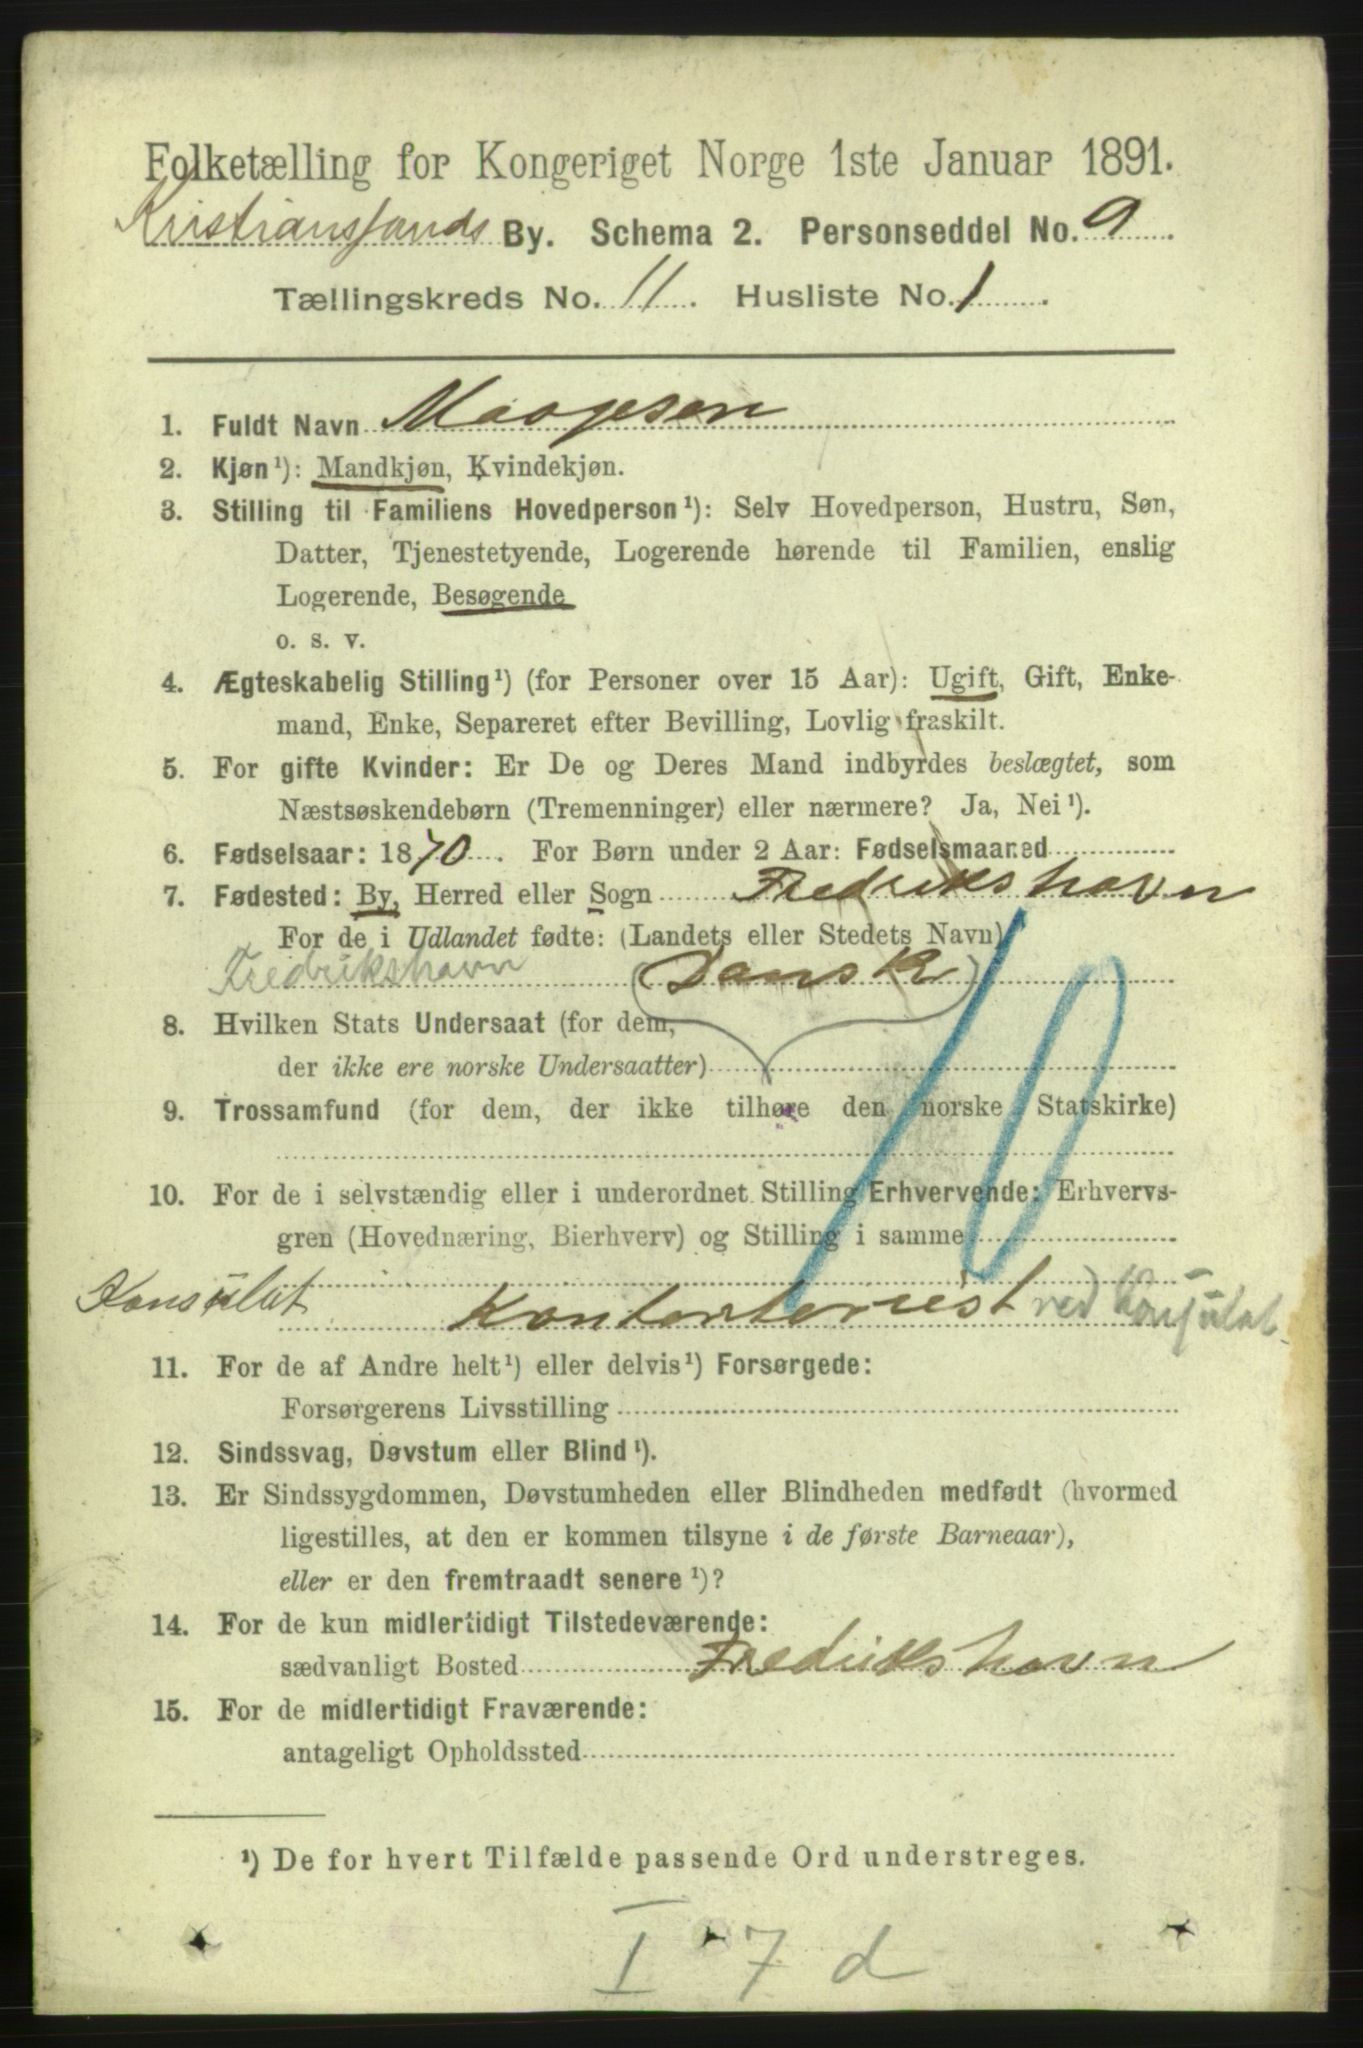 Folketælling for Kongeriget Norge 1ste Januar 1891.
Kristianssands By. Schema 2. Personseddel No. 9.
Tællingskreds No. 11. Husliste No. 1.
1. Fuldt Navn Moogesen
2. Kjøn¹): Mandkjøn, Kvindekjøn.
3. Stilling til Familiens Hovedperson¹): Selv Hovedperson, Hustru, Søn,
Datter, Tjenestetyende, Logerende hørende til Familien, enslig
Logerende, Besøgende
o. s. v.
4. Ægteskabelig Stilling¹) (for Personer over 15 Aar): Ugift, Gift, Enke-
mand, Enke, Separeret efter Bevilling, Lovlig fraskilt.
5. For gifte Kvinder: Er De og Deres Mand indbyrdes beslægtet, som
Næstsøskendebørn (Tremenninger) eller nærmere? Ja, Nei¹).
6. Fødselsaar: 1870. For Børn under 2 Aar: Fødselsmaaned
7. Fødested: By, Herred eller Sogn Fredrikshavn
For de i Udlandet fødte: (Landets eller Stedets Navn)
Fredrikshavn (Dansk)
8. Hvilken Stats Undersaat (for dem,
der ikke ere norske Undersaatter)
9. Trossamfund (for dem, der ikke tilhøre den norske Statskirke)
10
10. For de i selvstændig eller i underordnet Stilling Erhvervende: Erhvervs-
gren (Hovednæring, Bierhverv) og Stilling i samme
Konsulat Kontoriest ved Konsulat
11. For de af Andre helt¹) eller delvis¹) Forsørgede:
Forsørgerens Livsstilling
12. Sindssvag, Døvstum eller Blind¹).
13. Er Sindssygdommen, Døvstumheden eller Blindheden medfødt (hvormed
ligestilles, at den er kommen tilsyne i de første Barneaar),
eller er den fremtraadt senere¹)?
14. For de kun midlertidigt Tilstedeværende:
sædvanligt Bosted Fredrikshavn
15. For de midlertidigt Fraværende:
antageligt Opholdssted
¹) De for hvert Tilfælde passende Ord understreges.
I 7 d